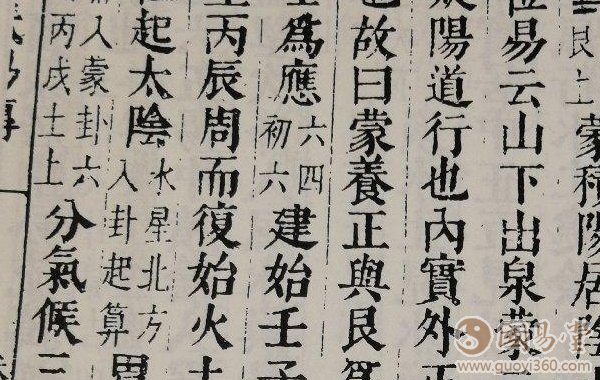 艮上 蒙積陽居陰
易云山下出泉蒙
陽道行也内實外
也故曰蒙養正與艮爲
爲應六四初六建始壬子
丙辰周而復始火
起太陰水星北方入卦起算胃
入蒙卦六丙戌土上分氣候三
國易堂
www.guoyi360.com